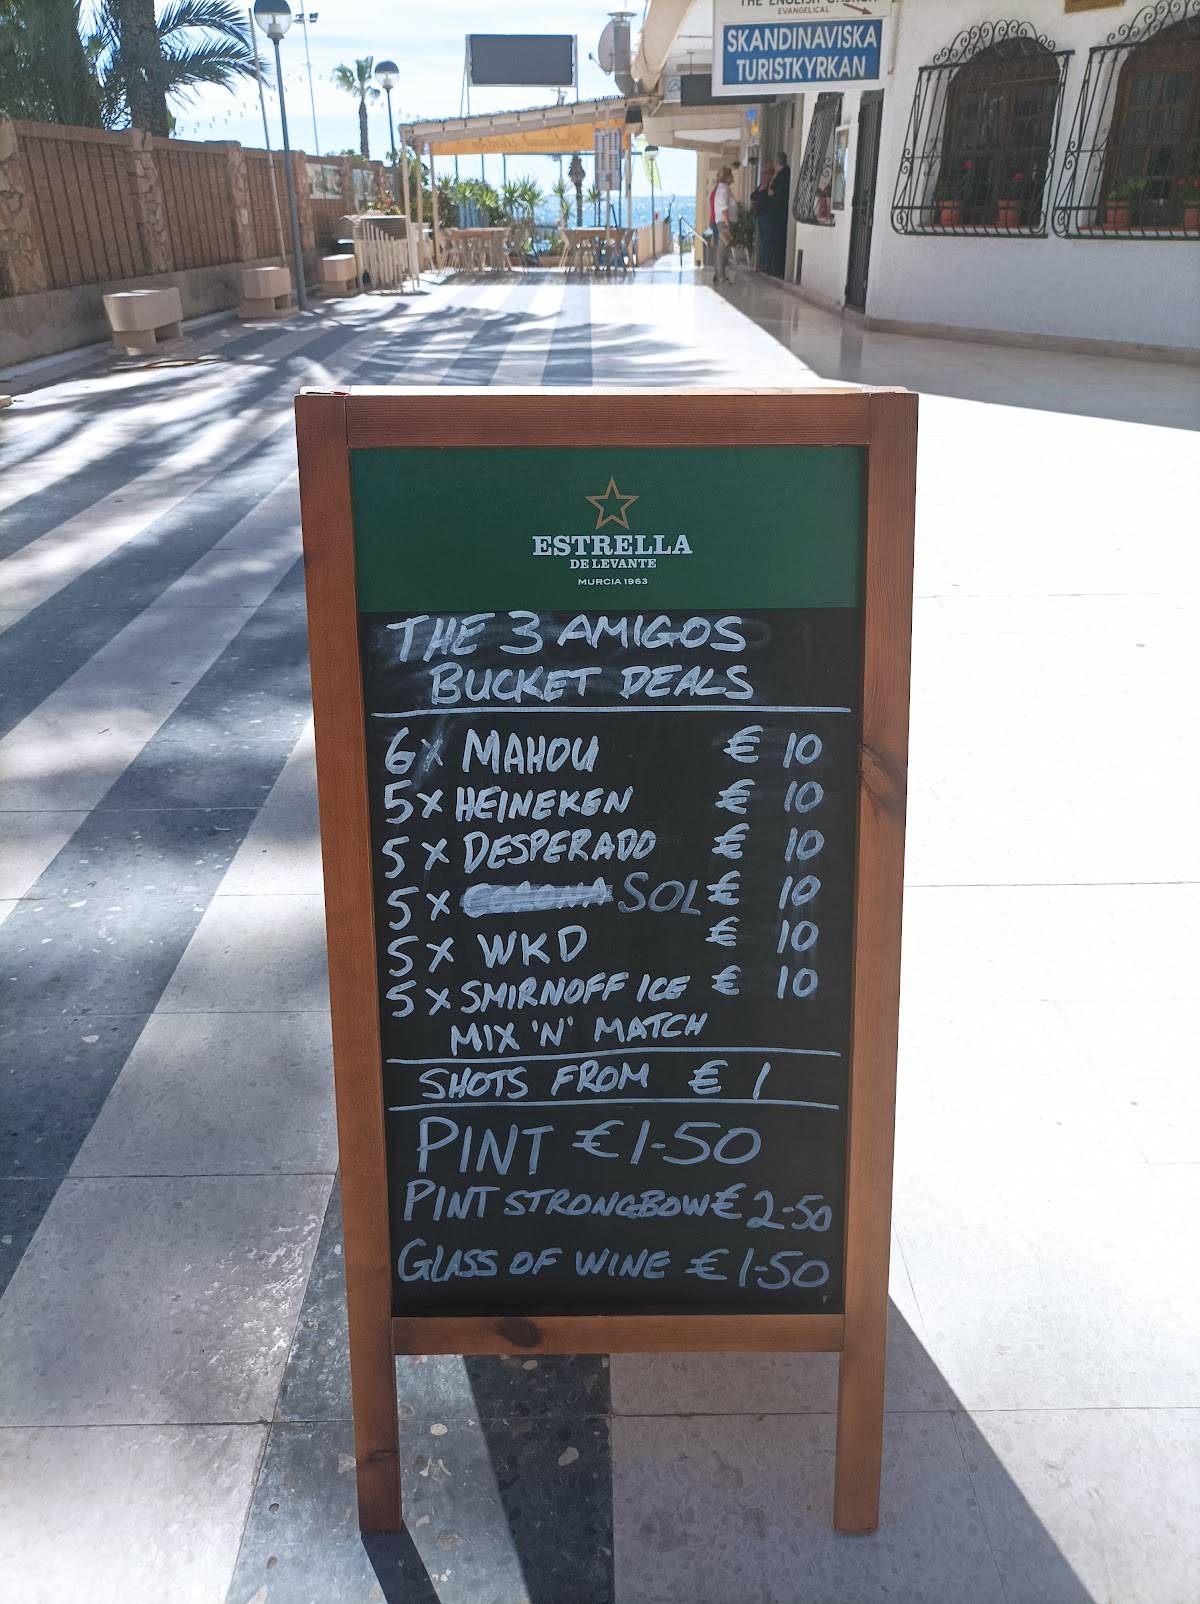 THE ENGLISH CHURCH
EVANGELICAL
SKANDINAVISKA
TURISTKYRKAN
ESTRELLA
DE LEVANTE
MURCIA 1963
THE 3 AMIGOS
BUCKET DEALS
6 x MAHOU € 10
5 x HEINEKEN € 10
5 x DESPERADO € 10
5 x CORONA SOL € 10
5 x WKD € 10
5 x SMIRNOFF ICE € 10
MIX 'N' MATCH
SHOTS FROM € 1
PINT €1-50
PINT STRONGBOW € 2-50
GLASS OF WINE € 1-50